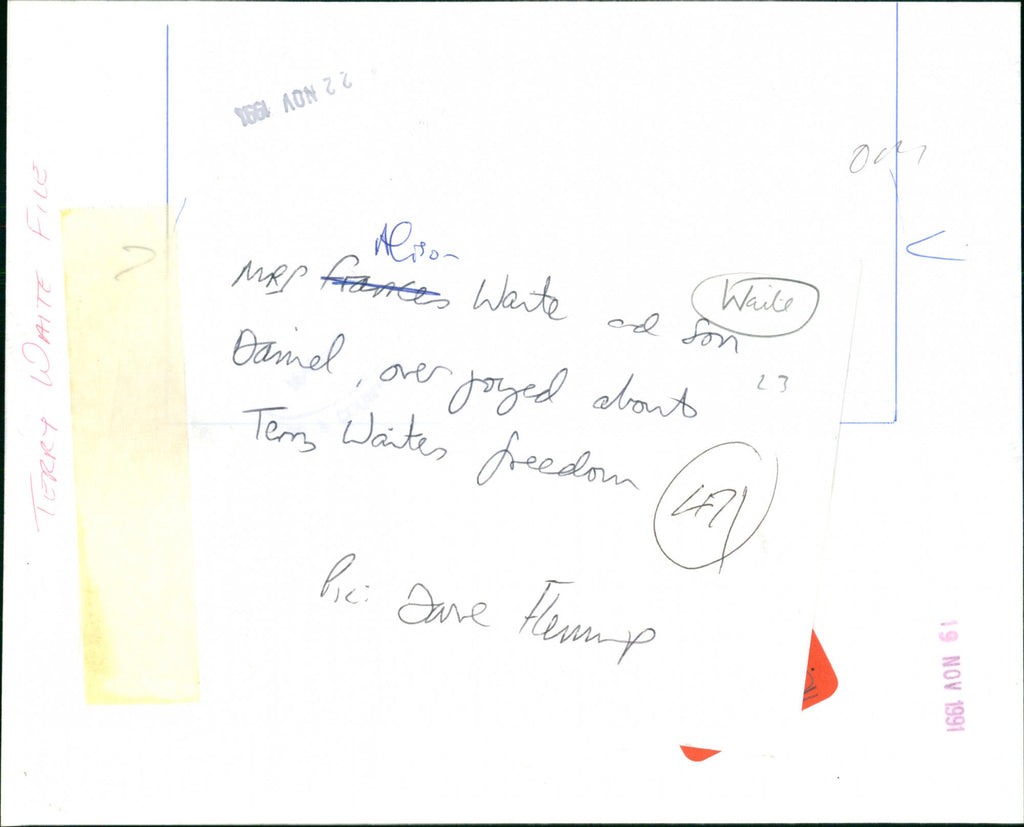 22 NOV 1991
TERRY WAITE FILE
Alison
MRS Frances Waite ad son
Waite
Daniel, over joyed about
23
Terry Waites freedom
471
Pic: Dave Fleming
19 NOV 1991